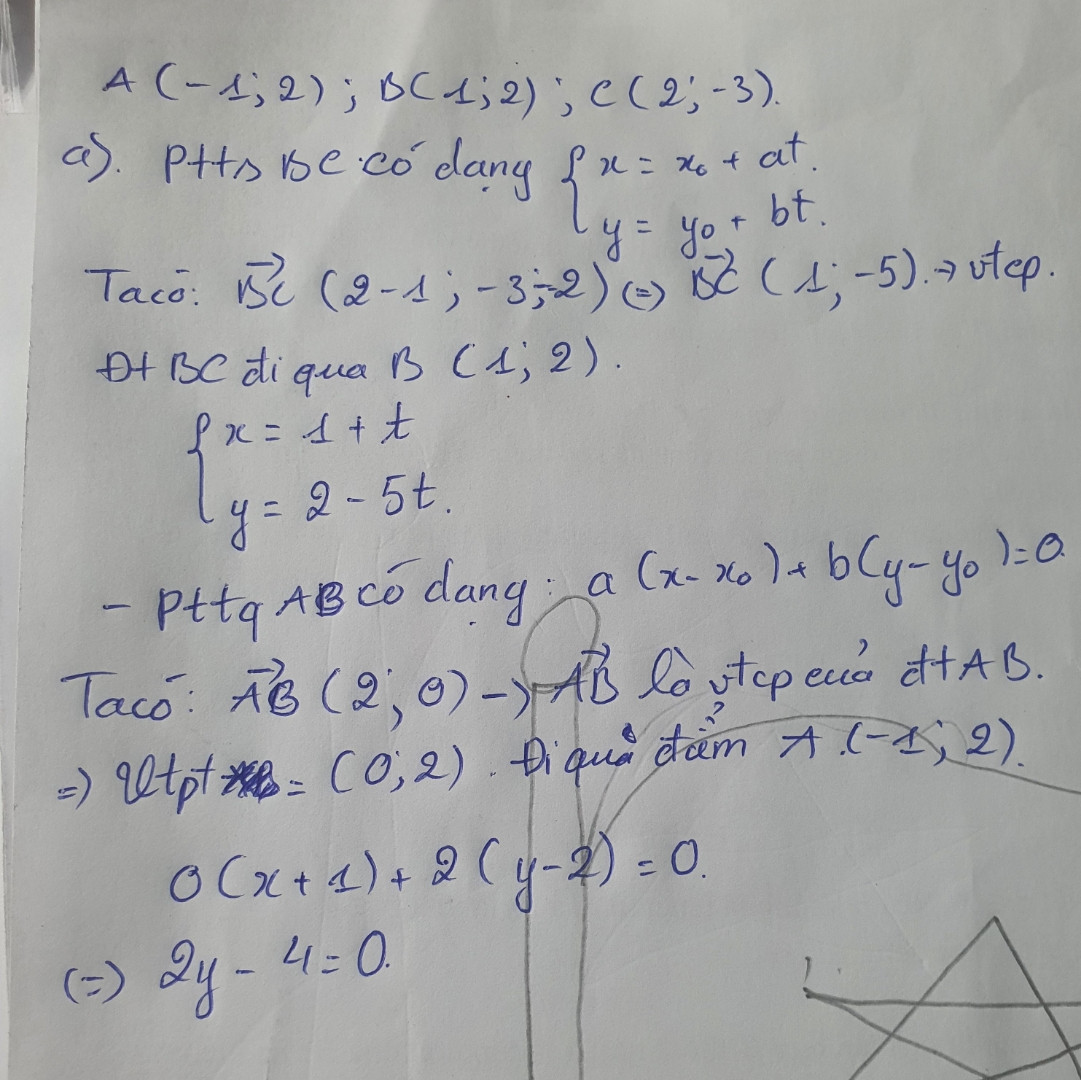 A (-1; 2) ; B(1; 2) ; C(2; -3).
a). PttS BC có dạng { x = x₀ + at.
y = y₀ + bt.
Ta có: BC→ (2-1 ; -3-2) (=) BC→ (1; -5). → vtcp.
Đt BC đi qua B (1; 2).
{ x = 1 + t
y = 2 - 5t.
- Pttq AB có dạng : a (x - x₀) + b(y - y₀) = 0
Ta có: AB→ (2; 0) → AB→ là vtcp của đt AB.
=) Vtpt = (0; 2) . Đi qua điểm A (-1; 2).
0(x + 1) + 2 (y - 2) = 0.
(=) 2y - 4 = 0.